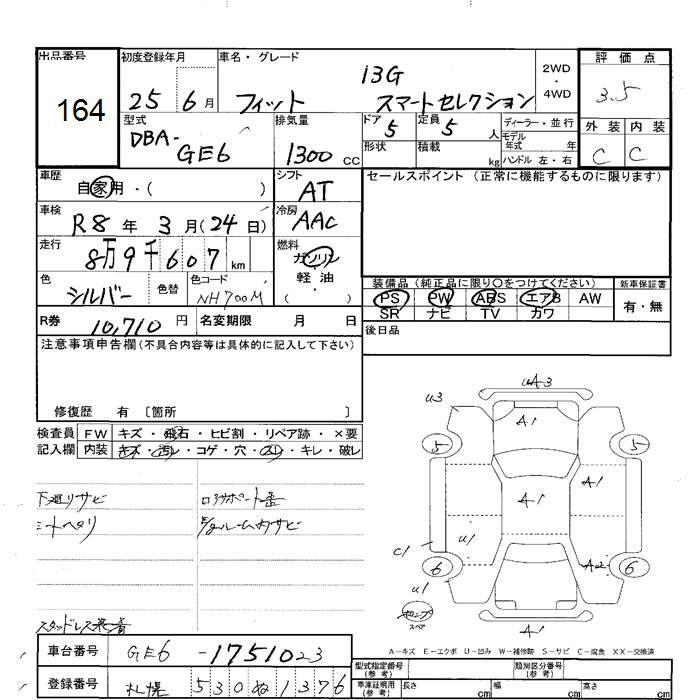 出品番号 初度登録年月 車名・グレード 2WD・4WD 評価点
164 25 6月 フィット 13G スマートセレクション 3.5
型式 排気量 ドア 定員 ディーラー・並行 外装 内装
DBA-GE6 1300CC 5 5人 モデル年式 年 C C
形状 積載 kg ハンドル 左・右
車歴 シフト セールスポイント(正常に機能するものに限ります)
自家用・( ) AT
車検 冷房
R8年3月(24日) AAC
走行 燃料
8万9千607km ガソリン・軽油・( )
色 色替 色コード 装備品(純正品に限り○をつけてください) 新車保証書
シルバー NH700M PS PW ABS エアB AW 有・無
SR ナビ TV カワ
R券 10,710円 名変期限 月 日 後日品
注意事項申告欄(不具合内容等は具体的に記入して下さい)
修復歴 有〔箇所 〕
検査員 FW キズ・飛石・ヒビ割・リペア跡・×要
記入欄 内装 キズ・汚レ・コゲ・穴・スレ・キレ・破レ
下廻リサビ
シートヘタリ
スタッドレス装着
UA3
U3 A1
5 5
A-1 A1
U1
C1 A2
6 6
U1
テンプ
スペア A1
A-キズ E-エクボ U-凹み W-補修跡 S-サビ C-腐食 XX-交換済
車台番号 GE6-1751023 型式指定番号(参考) 類別区分番号(参考)
登録番号 札幌 530ぬ1376 車庫証明用(参考) 長さ cm 幅 cm 高さ cm